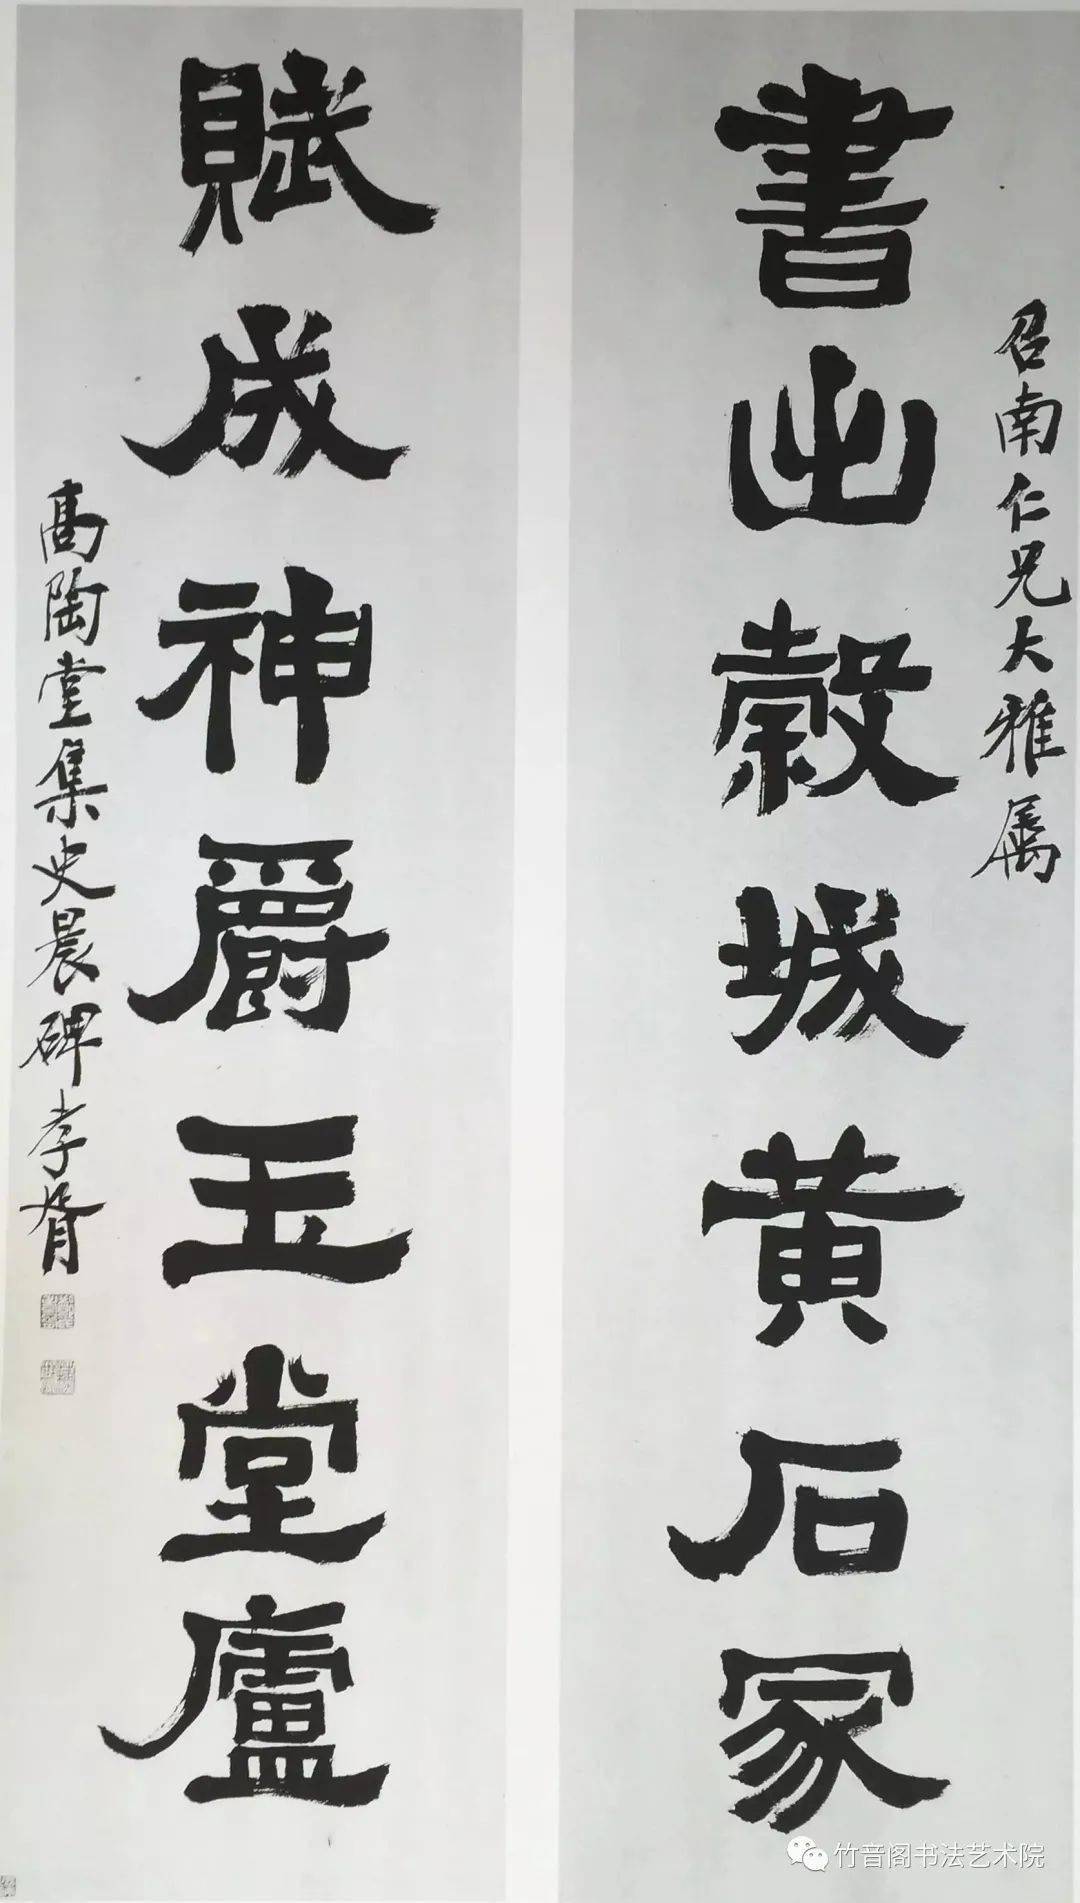 書出穀城黄石冢
召南仁兄大雅属
賦成神爵玉堂廬
高陶堂集史晨碑孝胥
竹音阁书法艺术院